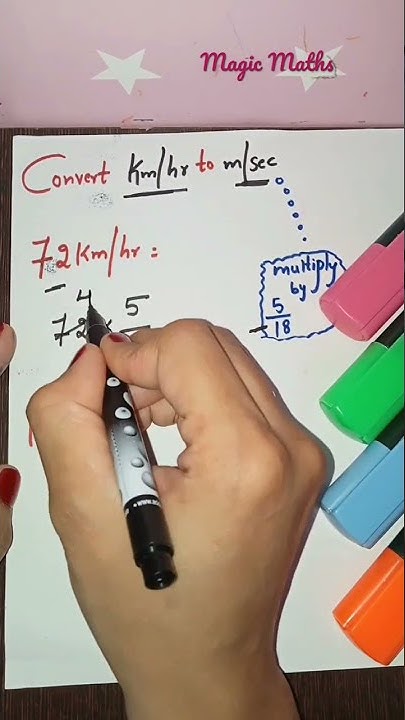 Magic Maths
Convert Km/hr to m/sec
72 Km/hr =
multiply
by
5
18
4
72 × 5